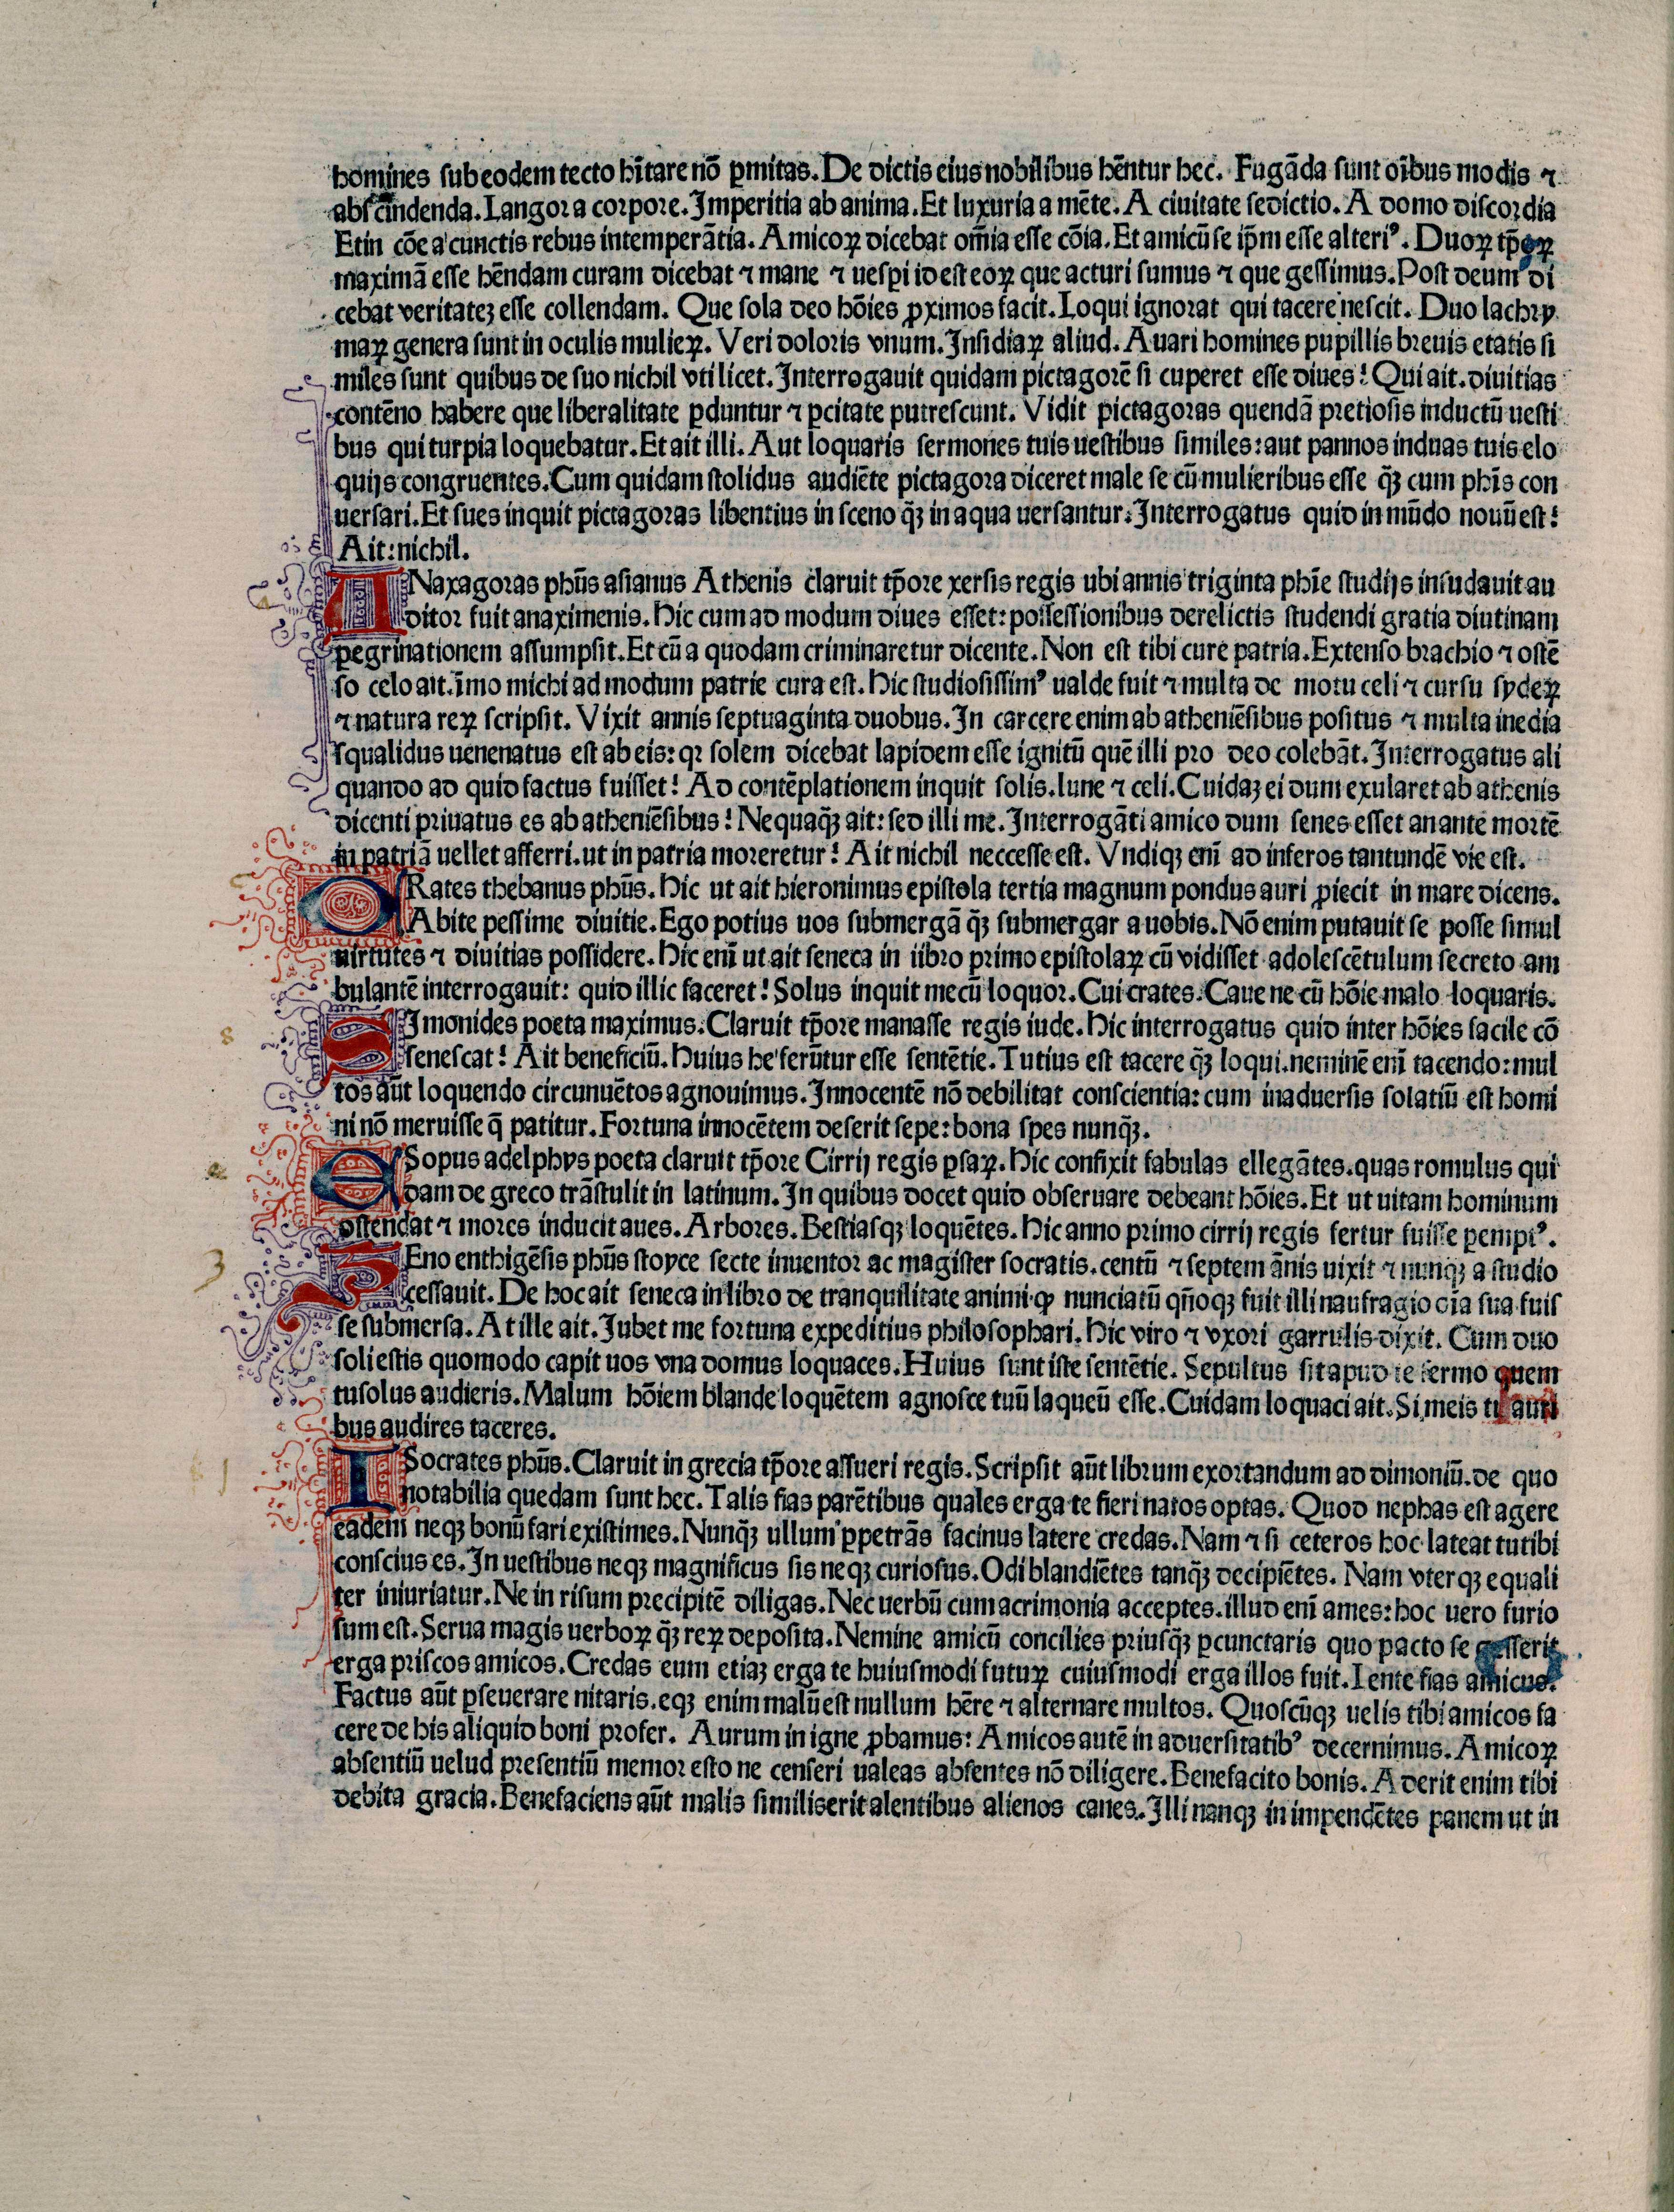 homines sub eodem tecto hĩtare nõ ꝑmitas. De dictis eius nobilibus hẽntur hec. Fugãda sunt oĩbus modis ⁊
abscindenda. Langor a corpore. Imperitia ab anima. Et luxuria a mẽte. A ciuitate sedictio. A domo discordia
Et in cõe a cunctis rebus intemperãtia. Amicoꝝ dicebat om̃ia esse cõia. Et amicũ se ip̃m esse alteriꝰ. Duoꝝ tp̃oꝝ
maximã esse hẽndam curam dicebat ⁊ mane ⁊ uesꝑi id est eoꝝ que acturi sumus ⁊ que gessimus. Post deum di
cebat veritateꝫ esse collendam. Que sola deo hõies ꝓximos facit. Loqui ignorat qui tacere nescit. Duo lachry
maꝝ genera sunt in oculis mulieꝝ. Veri doloris vnum. Insidiaꝝ aliud. Auari homines pupillis breuis etatis si
miles sunt quibus de suo nichil vti licet. Interrogauit quidam pictagorẽ si cuperet esse diues? Qui ait. diuitias
contẽno habere que liberalitate ꝑduntur ⁊ ꝑcitate putrescunt. Vidit pictagoras quendã pretiosis inductũ uesti
bus qui turpia loquebatur. Et ait illi. Aut loquaris sermones tuis uestibus similes: aut pannos induas tuis elo
quijs congruentes. Cum quidam stolidus audiẽte pictagora diceret male se cũ mulieribus esse q̃ꝫ cum ph̃is con
uersari. Et sues inquit pictagoras libentius in sceno q̃ꝫ in aqua uersantur. Interrogatus quid in mũdo nouũ est?
Ait: nichil.
ANaxagoras ph̃us asianus Athenis claruit tp̃ore xersis regis ubi annis triginta ph̃ie studijs insudauit au
ditor fuit anaximenis. Hic cum ad modum diues esset: possessionibus derelictis studendi gratia diutinam
ꝑegrinationem assumpsit. Et cũ a quodam criminaretur dicente. Non est tibi cure patria. Extenso brachio ⁊ ostẽ
so celo ait. ĩmo michi ad modum patrie cura est. Hic studiosissimꝰ ualde fuit ⁊ multa de motu celi ⁊ cursu sydeꝝ
⁊ natura reꝝ scripsit. Vixit annis septuaginta duobus. In carcere enim ab atheniẽsibus positus ⁊ multa inedia
squalidus uenenatus est ab eis: qꝛ solem dicebat lapidem esse ignitũ quẽ illi pro deo colebãt. Interrogatus ali
quando ad quid factus fuisset? Ad contẽplationem inquit solis. lune ⁊ celi. Cuidaꝫ ei dum exularet ab athenis
dicenti priuatus es ab atheniẽsibus? Nequaq̃ꝫ ait: sed illi me. Interrogãti amico dum senes esset an ante mortẽ
in patriã uellet afferri. ut in patria moreretur? Ait nichil neccesse est. Vndiqꝫ enĩ ad inferos tantundẽ vie est.
CRates thebanus ph̃us. Hic ut ait hieronimus epistola tertia magnum pondus auri ꝓiecit in mare dicens.
Abite pessime diuitie. Ego potius uos submergã q̃ꝫ submergar a uobis. Nõ enim putauit se posse simul
uirtutes ⁊ diuitias possidere. Hic enĩ ut ait seneca in iibro primo epistolaꝝ cũ vidisset adolescẽtulum secreto am
bulantẽ interrogauit: quid illic faceret? Solus inquit mecũ loquor. Cui crates. Caue ne cũ hõie malo loquaris.
SImonides poeta maximus. Claruit tp̃ore manasse regis iude. Hic interrogatus quid inter hõies facile cõ
senescat? Ait beneficiũ. Huius he ferũtur esse sentẽtie. Tutius est tacere q̃ꝫ loqui. neminẽ enĩ tacendo: mul
tos aũt loquendo circunuẽtos agnouimus. Innocentẽ nõ debilitat conscientia: cum in aduersis solatiũ est homi
ni nõ meruisse q̃ patitur. Fortuna innocẽtem deserit sepe: bona spes nunq̃ꝫ.
ESopus adelphys poeta claruit tp̃ore Cirrij regis ꝑsaꝝ. Hic confixit fabulas ellegãtes. quas romulus qui
dam de greco trãstulit in latinum. In quibus docet quid obseruare debeant hõies. Et ut uitam hominum
ostendat ⁊ mores inducit aues. Arbores. Bestiasqꝫ loquẽtes. Hic anno primo cirrij regis fertur fuisse ꝑemptꝰ.
ZEno enthigẽsis ph̃us stoyce secte inuentor ac magister socratis. centũ ⁊ septem ãnis uixit ⁊ nunqꝫ a studio
cessauit. De hoc ait seneca in libro de tranquilitate animi ꝙ nunciatũ qñoqꝫ fuit illi naufragio oĩa sua fuis
se submersa. At ille ait. Iubet me fortuna expeditius philosophari. Hic viro ⁊ vxori garrulis dixit. Cum duo
soli estis quomodo capit uos vna domus loquaces. Huius sunt iste sentẽtie. Sepultus sit apud te sermo quem
tu solus audieris. Malum hõiem blande loquẽtem agnosce tuũ laqueũ esse. Cuidam loquaci ait. Si meis tu auri
bus audires taceres.
ISocrates ph̃us. Claruit in grecia tp̃ore assueri regis. Scripsit aũt librum exortandum ad dimoniũ. de quo
notabilia quedam sunt hec. Talis fias parẽtibus quales erga te fieri natos optas. Quod nephas est agere
eadem neqꝫ bonũ fari existimes. Nunq̃ꝫ ullum ꝑpetrãs facinus latere credas. Nam ⁊ si ceteros hoc lateat tu tibi
conscius es. In uestibus neqꝫ magnificus sis neqꝫ curiosus. Odi blandiẽtes tanq̃ꝫ decipiẽtes. Nam vterqꝫ equali
ter iniuriatur. Ne in risum precipitẽ diligas. Nec uerbũ cum acrimonia acceptes. illud enĩ ames: hoc uero furio
sum est. Serua magis uerboꝝ q̃ꝫ reꝝ deposita. Nemine amicũ concilies priusq̃ꝫ ꝑcunctaris quo pacto se gesserit
erga priscos amicos. Credas eum etiaꝫ erga te huiusmodi futuꝝ cuiusmodi erga illos fuit. Lente fias amicus.
Factus aũt ꝑseuerare nitaris. eqꝫ enim malũ est nullum hẽre ⁊ alternare multos. Quoscũqꝫ uelis tibi amicos fa
cere de his aliquid boni profer. Aurum in igne ꝓbamus: Amicos autẽ in aduersitatibꝰ decernimus. Amicoꝝ
absentiũ uelud presentiũ memor esto ne censeri ualeas absentes nõ diligere. Benefacito bonis. Aderit enim tibi
debita gracia. Benefaciens aũt malis similis erit alentibus alienos canes. Illi nanqꝫ in impendẽtes panem ut in